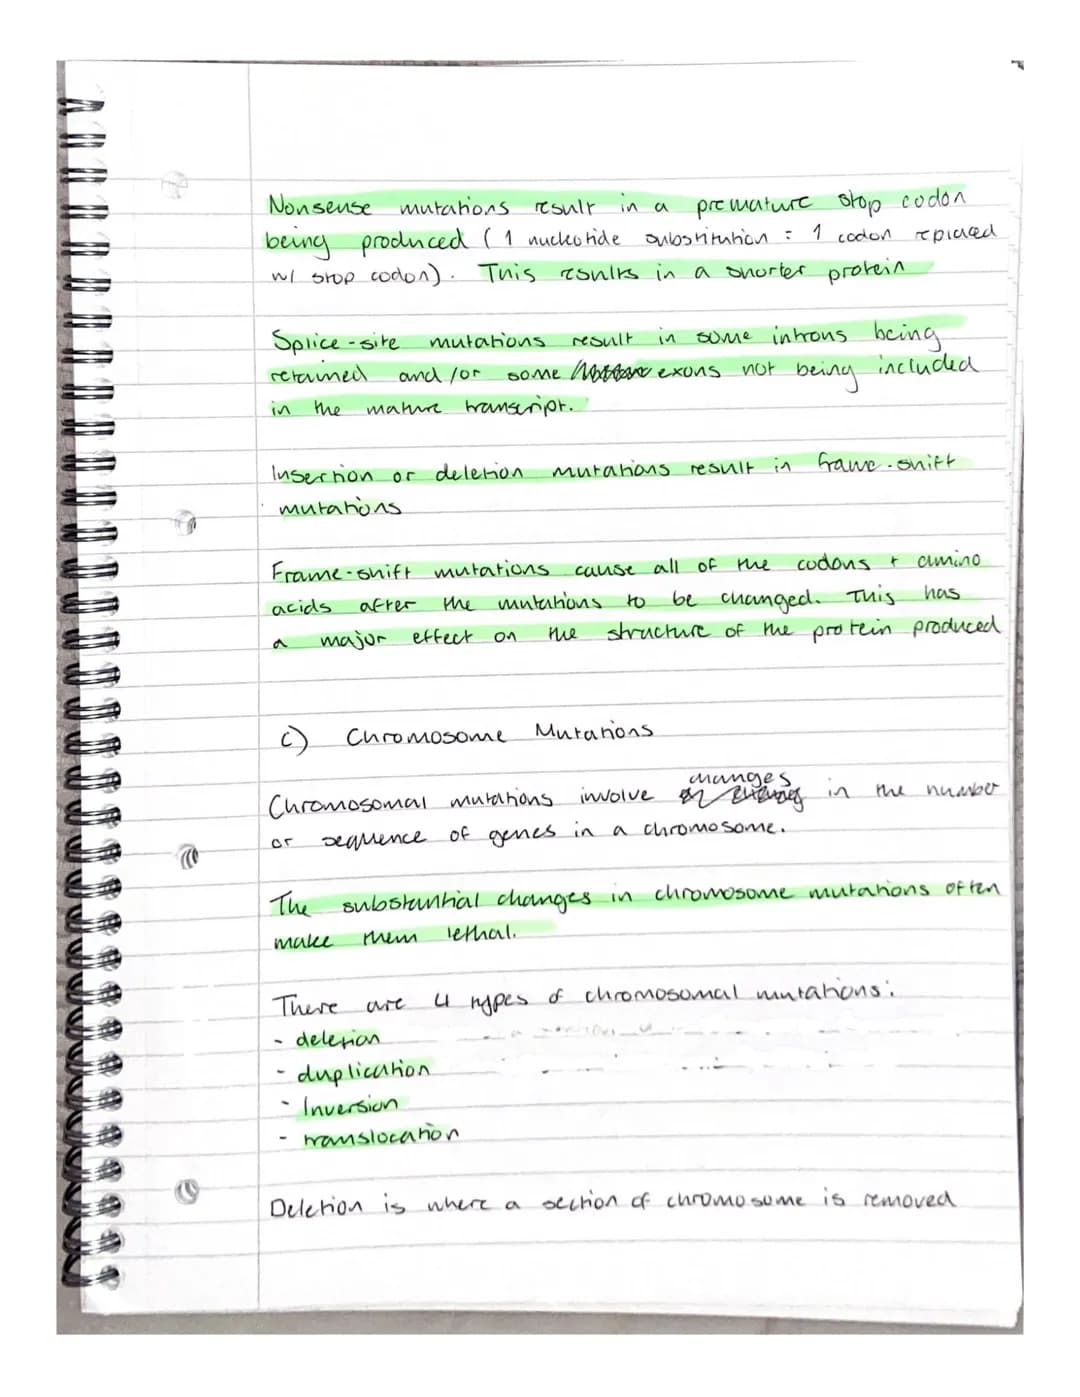 Nonsense mutations result in a premature stop codon
being produced (1 nucleotide substitution = 1 codon replaced
w/ stop codon). This results in a shorter protein
Splice-site mutations result in some introns being
retained and/or some exons not being included
in the mature transcript.
Insertion or deletion mutations result in frame-shift
mutations
Frame-shift mutations cause all of the codons + amino
acids after the mutations to be changed. This has
a major effect on the structure of the protein produced
c) Chromosome Mutations
Chromosomal mutations involve changes in the number
or sequence of genes in a chromosome.
The substantial changes in chromosome mutations often
make them lethal.
There are 4 types of chromosomal mutations:
- deletion
- duplication
- Inversion
- translocation
Deletion is where a section of chromosome is removed